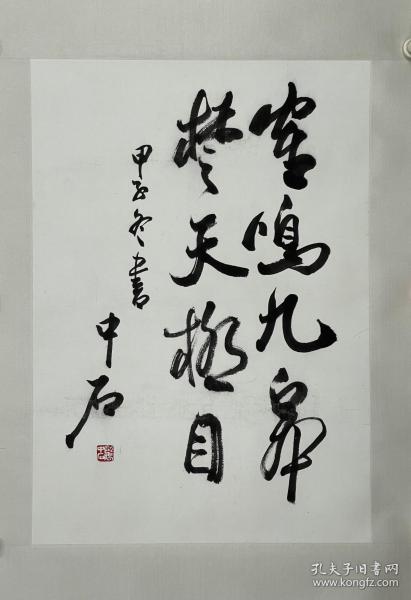 寉鳴九皋
楚天極目
甲子冬書
中石
孔夫子旧书网
www.kongfz.com